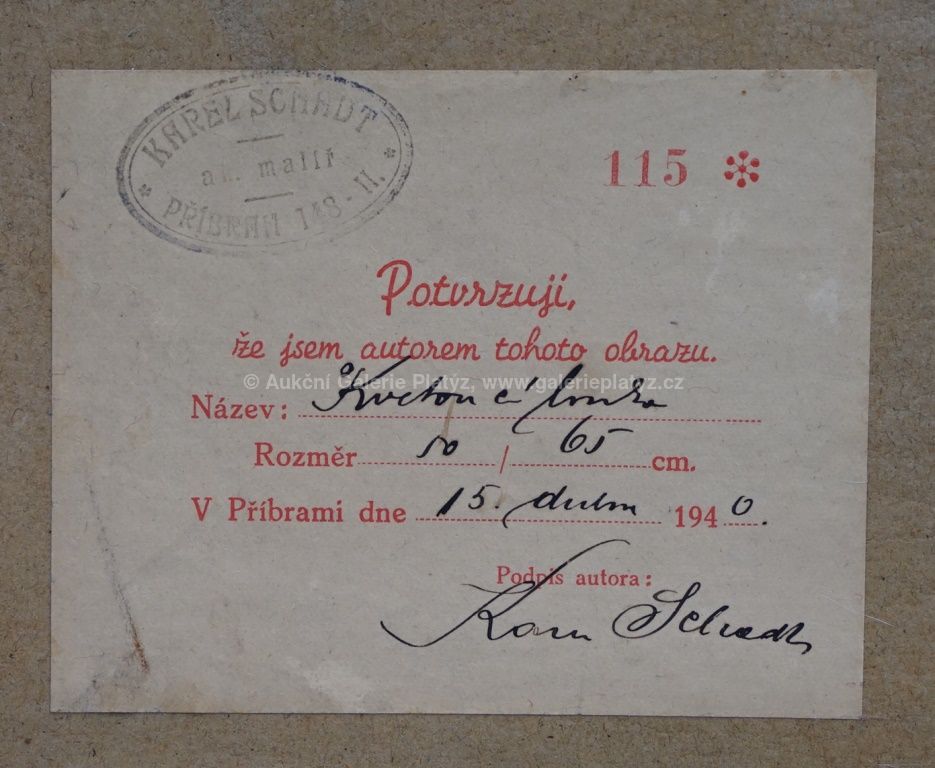 KAREL SCHADT
ak. malíř
PŘÍBRAM 148-II.
115
Potvrzuji,
že jsem autorem tohoto obrazu.
© Aukční Galerie Platýz, www.galerieplatyz.cz
Název: Kvetoucí louka
Rozměr 50 / 65 cm.
V Příbrami dne 15. dubna 1940.
Podpis autora:
Karel Schadt